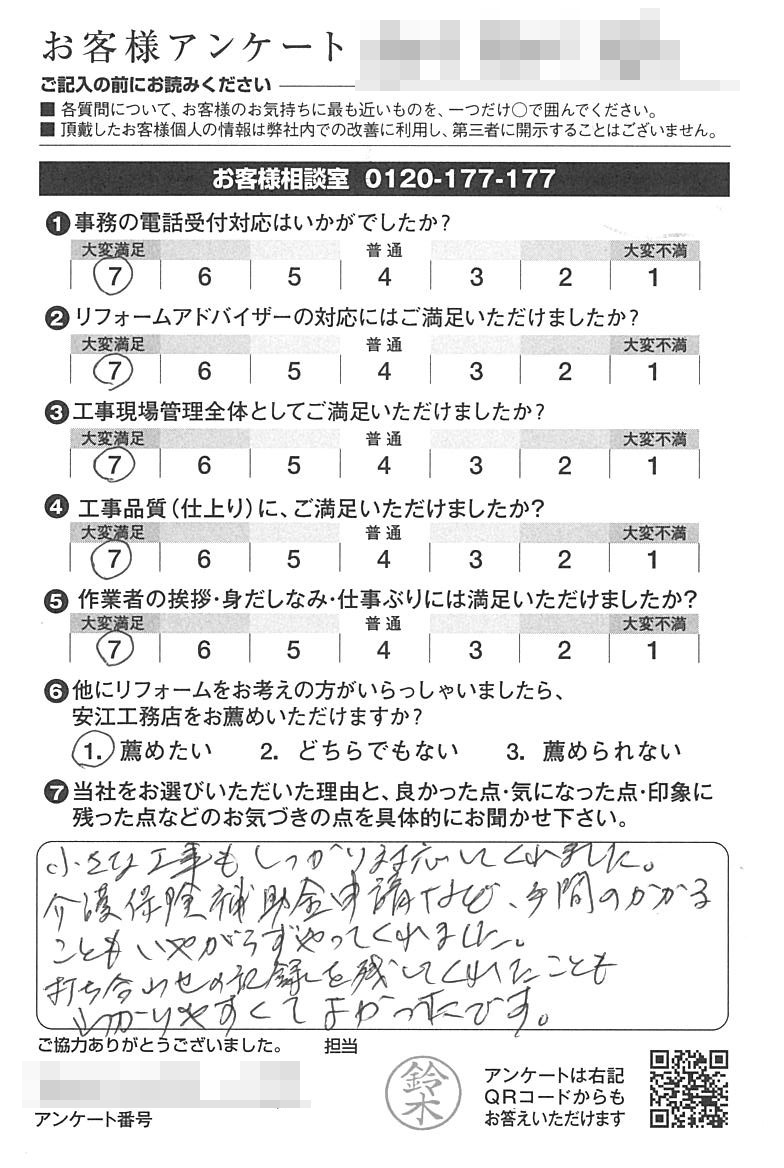 お客様アンケート
ご記入の前にお読みください
■ 各質問について、お客様のお気持ちに最も近いものを、一つだけ○で囲んでください。
■ 頂戴したお客様個人の情報は弊社内での改善に利用し、第三者に開示することはございません。
お客様相談室 0120-177-177
❶ 事務の電話受付対応はいかがでしたか?
大変満足 普通 大変不満
7 6 5 4 3 2 1
❷ リフォームアドバイザーの対応にはご満足いただけましたか?
大変満足 普通 大変不満
7 6 5 4 3 2 1
❸ 工事現場管理全体としてご満足いただけましたか?
大変満足 普通 大変不満
7 6 5 4 3 2 1
❹ 工事品質(仕上り)に、ご満足いただけましたか?
大変満足 普通 大変不満
7 6 5 4 3 2 1
❺ 作業者の挨拶・身だしなみ・仕事ぶりには満足いただけましたか?
大変満足 普通 大変不満
7 6 5 4 3 2 1
❻ 他にリフォームをお考えの方がいらっしゃいましたら、
安江工務店をお薦めいただけますか?
1. 薦めたい 2. どちらでもない 3. 薦められない
❼ 当社をお選びいただいた理由と、良かった点・気になった点・印象に
残った点などのお気づきの点を具体的にお聞かせ下さい。
小さな工事もしっかり対応してくれました。
介護保険補助金申請など、手間のかかる
こともいやがらずやってくれました。
打ち合わせの記録を残してくれたことも
わかりやすくてよかったです。
ご協力ありがとうございました。 担当
鈴木
アンケートは右記
QRコードからも
お答えいただけます
アンケート番号